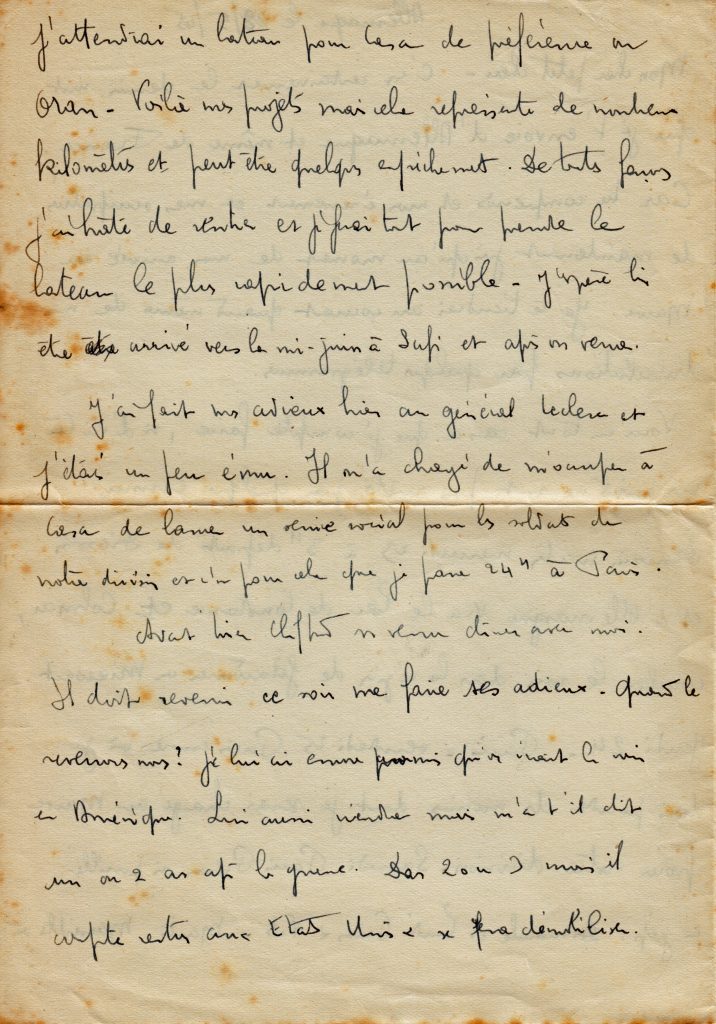 J'attendrai un bateau pour Casa de préférence ou
Oran - Voilà mes projets mais cela représente de nombreux
kilomètres et peut être quelques empêchements. De toutes façons
j'ai hâte de rentrer et je ferai tout pour prendre le
bateau le plus rapidement possible - J'espère bien
être arrivé vers la mi-juin à Safi et après on verra.
J'ai fait mes adieux hier au général Leclerc et
j'étais un peu ému. Il m'a chargé de m'occuper à
Casa de lancer un service social pour les soldats de
notre division et c'est pour cela que je passe 24 H à Paris.
Avant hier Clifford est venu diner avec moi.
Il doit revenir ce soir me faire ses adieux. Quand le
reverrons nous? Je lui ai encore promis qu'on irait le voir
en Amérique. Lui aussi viendra mais m'a t'il dit
un ou 2 ans après la guerre. Dans 2 ou 3 mois il
compte rentrer aux Etats Unis et se fera démobiliser.